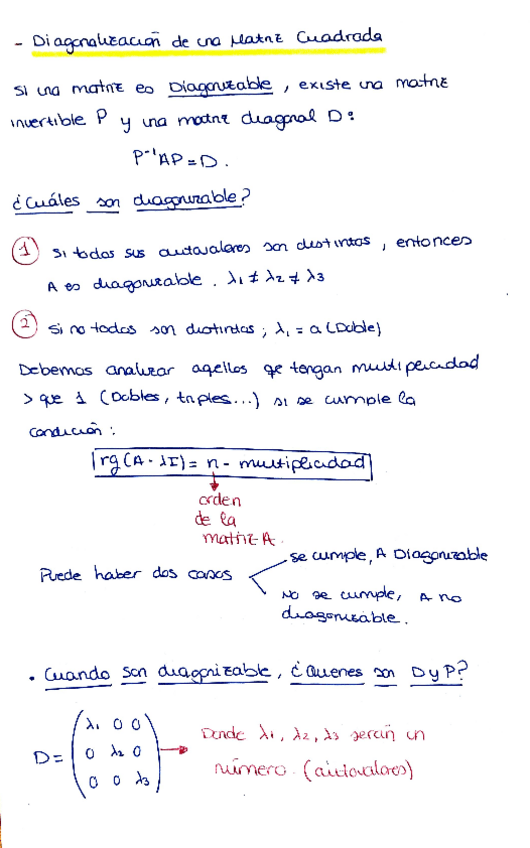 - Diagonalización de una Matriz Cuadrada
Si una matriz es Diagonizable, existe una matriz
invertible P y una matriz diagonal D:
P⁻¹AP = D.
¿Cuáles son diagonizable?
① Si todos sus autovalores son distintos, entonces
A es diagonizable. λ₁ ≠ λ₂ ≠ λ₃
② Si no todos son distintos; λ₁ = a (Doble)
Debemos analizar aqellos qe tengan multiplicidad
> que 1 (Dobles, triples...) si se cumple la
condición:
rg(A - λI) = n - multiplicidad
orden
de la
matriz A.
Puede haber dos casos
se cumple, A Diagonizable
No se cumple, A no
diagonizable.
• Cuando son diagonizable, ¿Quienes son D y P?
D = (λ₁ 0 0
0 λ₂ 0
0 0 λ₃)
Donde λ₁, λ₂, λ₃ serán un
número. (autovalores)